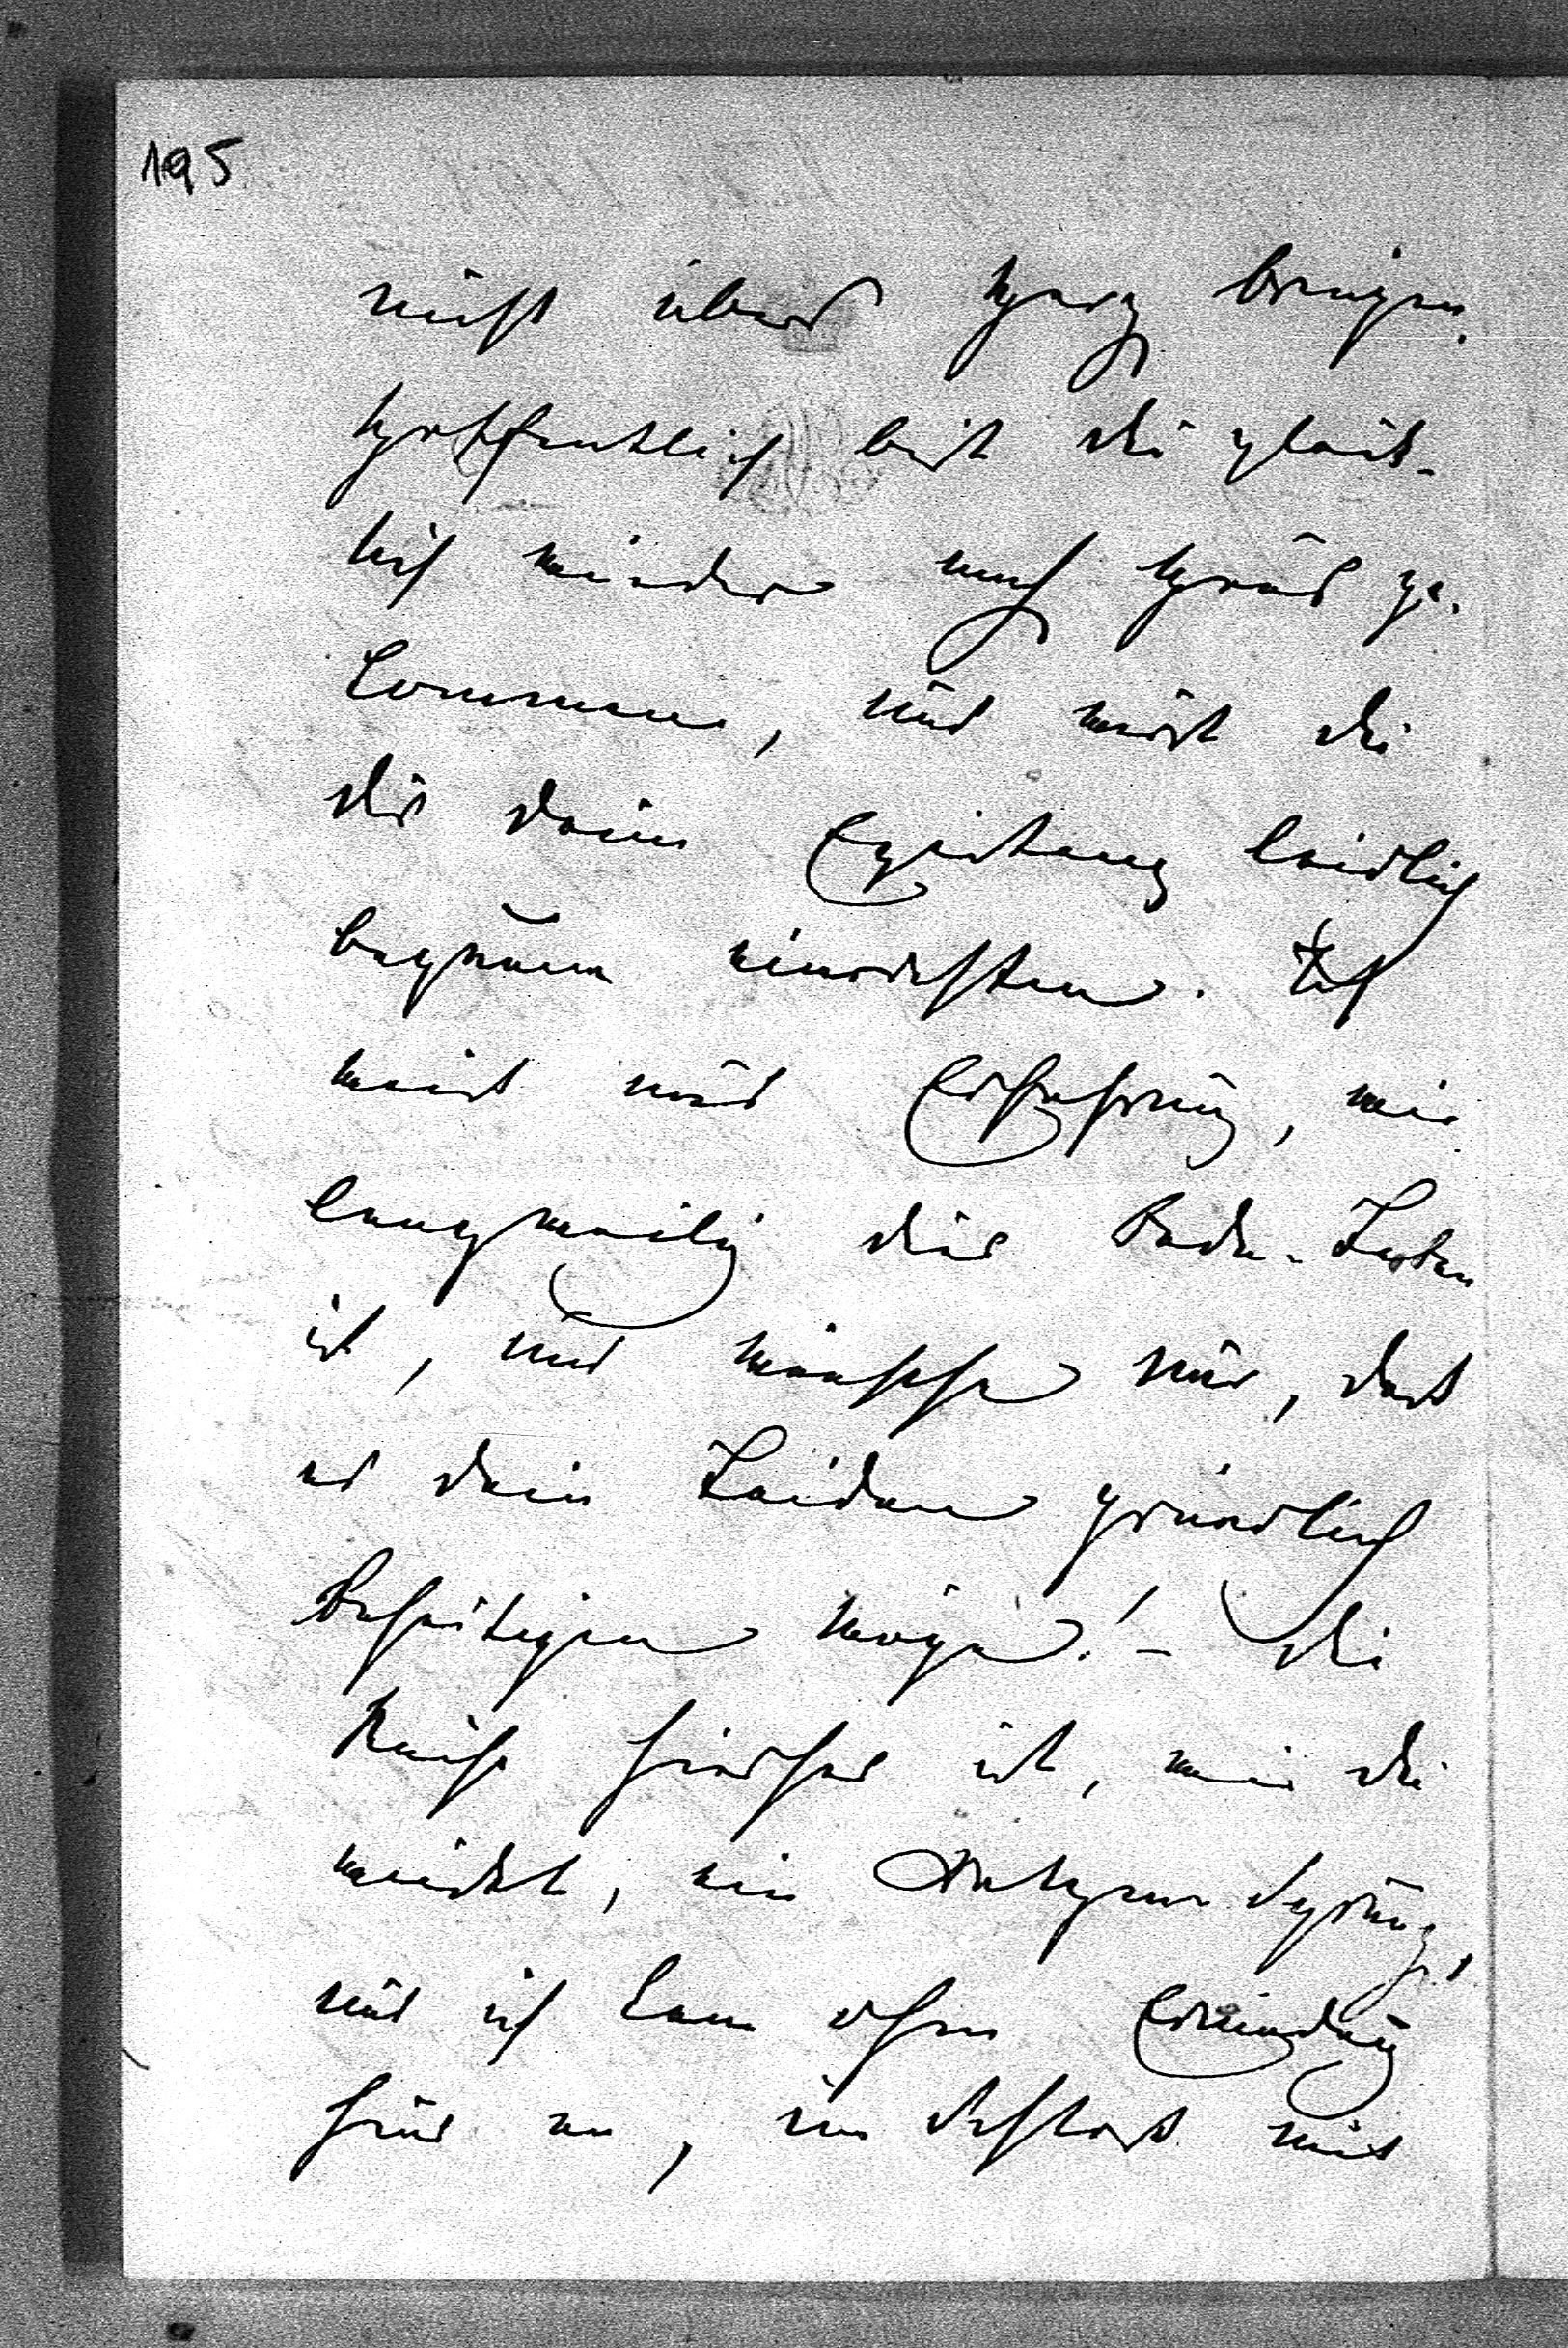 195
nicht übers Herz bringen.
Hoffentlich bist du glück-
lich wieder nach Haus ge-
kommen, und wirst du
dir deine Existenz leidlich
bequem einrichten. Ich
weiß aus Erfahrung, wie
langweilig das Bade-Leben
ist, und wünsche nur, daß
es dein Leiden gründlich
beseitigen möge! – Die
Reise hierher ist, wie du
weißt, ein Katzensprung,
und ich kam ohne Ermüdung
hier an, im Schloß mit